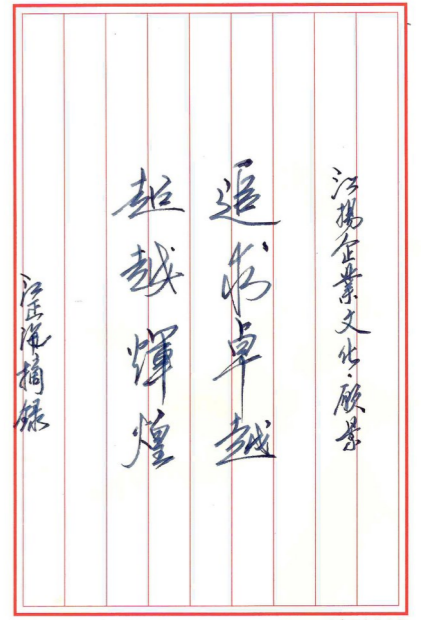 江扬企業文化·愿景
追求卓越
超越輝煌
江正沇摘録